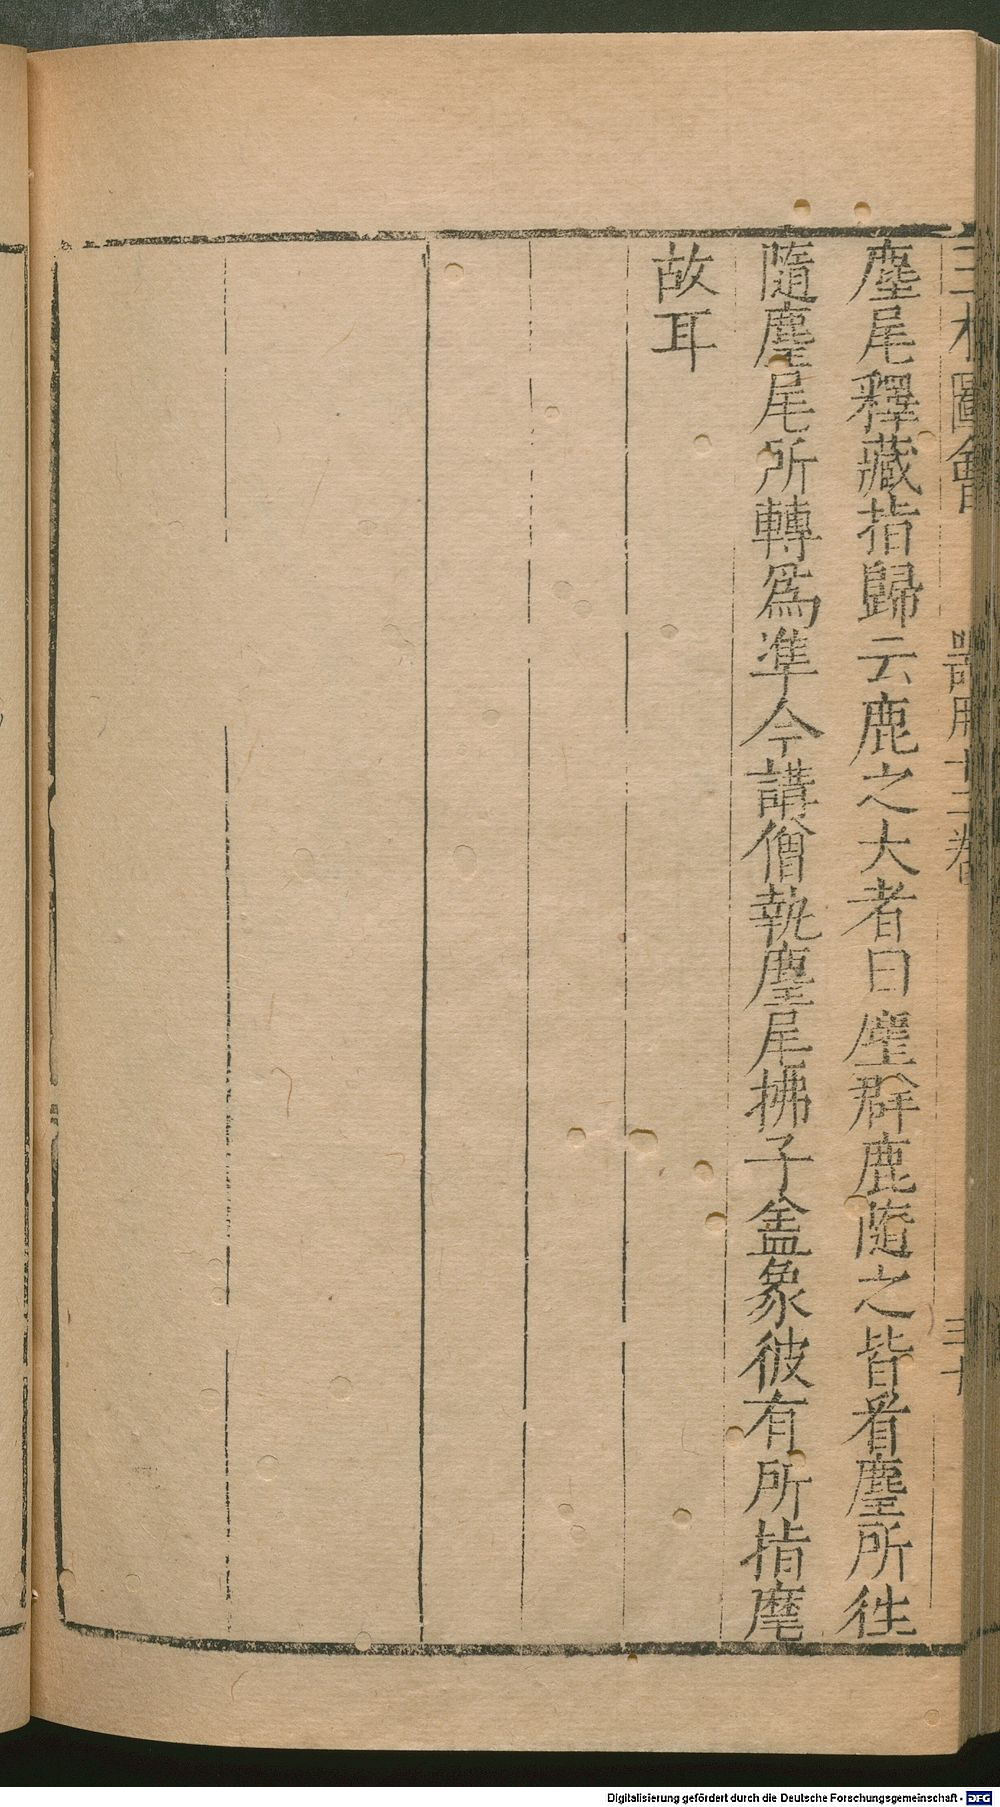 三才圖會 器用十二卷 三十
麈尾釋藏指歸云鹿之大者曰麈群鹿隨之皆看麈所往
隨麈尾所轉爲準今講僧執麈尾拂子盖象彼有所指麾
故耳
Digitalisierung gefördert durch die Deutsche Forschungsgemeinschaft - DFG